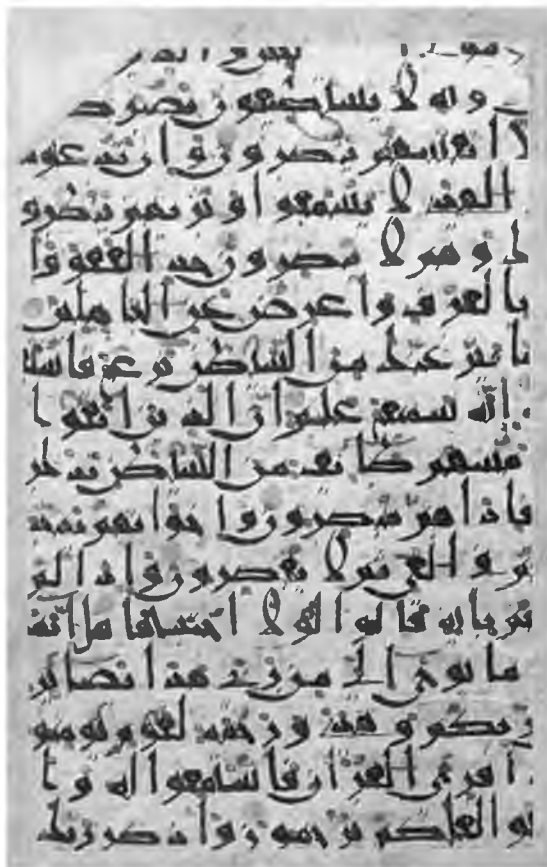 دونه لا يستطيعون نصركـ
لا انفسهم ينصرون وان تدعوهم
الهدى لا يسمعوا وتريهم ينظرو
ك وهم لا يبصرون خذ العفو وا
بالعرف واعرض عن الجهلين
ما ينزغنك من الشيطن نزغ فاستعذ
انه سميع عليم ان الذين اتقوا ا
مسهم طائف من الشيطن تذكر
فاذا هم مبصرون واخونهم يمد
في الغي ثم لا يقصرون واذا لم
تهم باية قالوا لولا اجتبيتها قل انما
ما يوحى الي من ربي هذا بصائر
ربكم وهدى ورحمة لقوم يومنو
قرئ القران فاستمعوا له وا
توا لعلكم ترحمون واذكر ربك